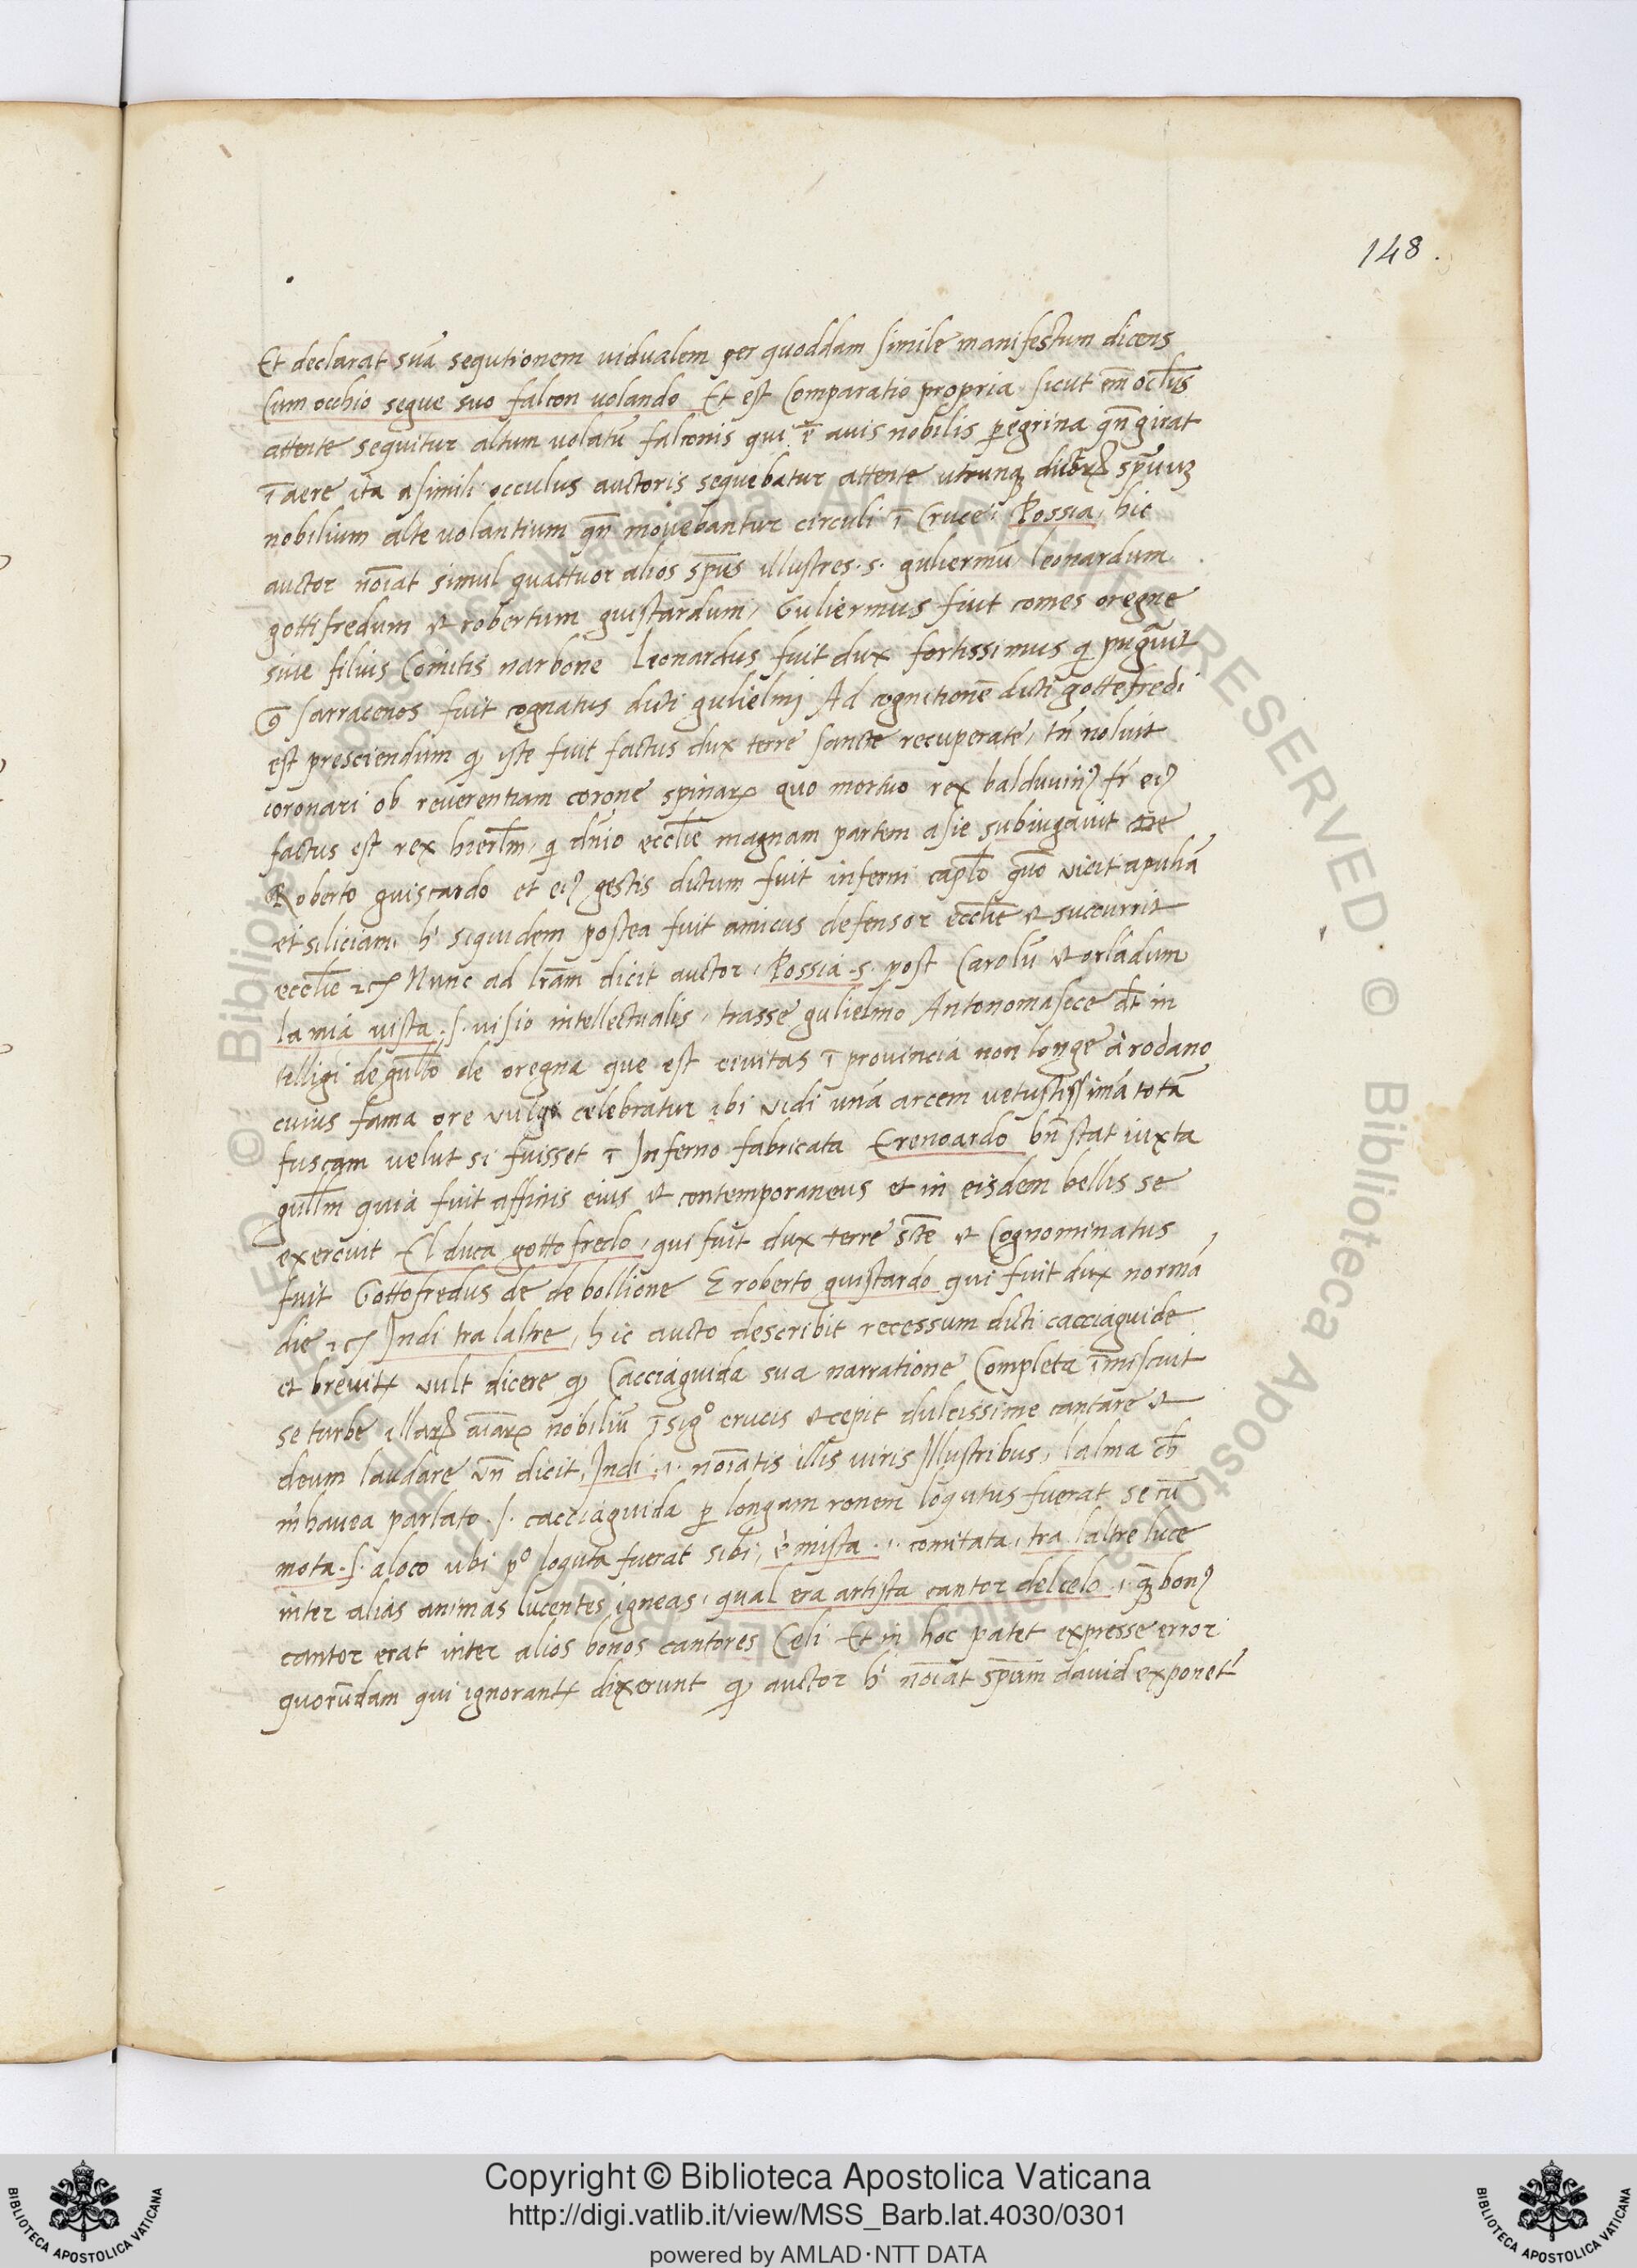 148.
Et declarat suā segutionem uidualem per quoddam simile manifestum dicens
Cum occhio segue suo falcon uolando Et est Comparatio propria sicut em̄ ocl̄us
attente sequitur altum uolatū falconis qui ē auis nobilis peregrina qn̄ girat
ī aere ita a simili occulus auctoris sequebatur attente utrunq
nobilium alte uolantium qn̄ mouebantur circuli ī Cruce, Possia, hic
auctor nōiat simul quattuor alios sp̄us illustres .s. guliermū leonardum
gottifredum et robertum guistardum, Guliermus fiut comes oregne
siue filius Comitis narbone Leonardus fuit dux fortissimus q pugāuit
9̄ sarracenos fuit cognatus dicti gulielmj Ad cognitionē dicti gottefredi
est presciendum q iste fuit factus dux terre sancte recuperate, tn̄ noluit
coronari ob reuerentiam corone spinaꝝ quo mortuo rex balduuinꝰ fr̄ eiꝰ
factus est rex hierl̄m, q dn̄io eccl̄ie magnam partem asie subiugauit
Roberto guiscardo et eiꝰ gestis dictum fuit inferni capl̄o quō uicit apuliā
et siliciam, h' siquidem postea fuit amicus defensor eccl̄ie et succurrit
eccl̄ie Nunc ad lr̄am dicit auctor, Possia .s. post Carolū et orlādum
la mia uista .s. uisio intellectualis, trasse gulielmo Antonomasice d̄t in
telligi de gull̄o de oregna que est ciuitas ī prouincia non longe à rodano
cuius fama ore uulgi celebratur ibi uidi unā arcem uetustissimā totā
fuscam uelut si fuisset ī Inferno fabricata Erenoardo bn̄ stat iuxta
gull̄m quia fuit affinis eius et contemporaneus et in eisdem bellis se
exercuit El duca gottofredo, qui fuit dux terre sc̄te et Cognominatus
fuit Gottofredus de de bollione E roberto guistardo qui fuit dux normā
die Indi tra laltre, hic aucto describit recessum dicti cacciaguide
et breuit̄ uult dicere q Cacciaguida sua narratione Completa īmiscuit
se turbe illaꝝ aīaꝝ nobiliū ī sigº crucis et cepit dulcissime cantare et
deum laudare un̄ dicit, Indi .i. nōiatis illis uiris Illustribus, lalma ch̄
m'hauea parlato .s. cacciaguida p longam ronem loqutus fuerat se cū
mota .s. a loco ubi pº loquta fuerat sibi, è mista .i. comitata, tra laltre luce
inter alias animas lucentes igneas, qual era artista cantor del celo .i. bonꝰ
cantor erat inter alios bonos cantores Celi Et in hoc patet expresse error
quorūdam qui ignorant̄ dixerunt q auctor h' nōiat sp̄um dauid exponet'
© Biblioteca Apostolica Vaticana ALL RIGHTS RESERVED © Biblioteca Apostolica Vaticana ALL RIGHTS RESERVED
Copyright © Biblioteca Apostolica Vaticana
http://digi.vatlib.it/view/MSS_Barb.lat.4030/0301
powered by AMLAD·NTT DATA
BIBLIOTECA APOSTOLICA VATICANA
BIBLIOTECA APOSTOLICA VATICANA